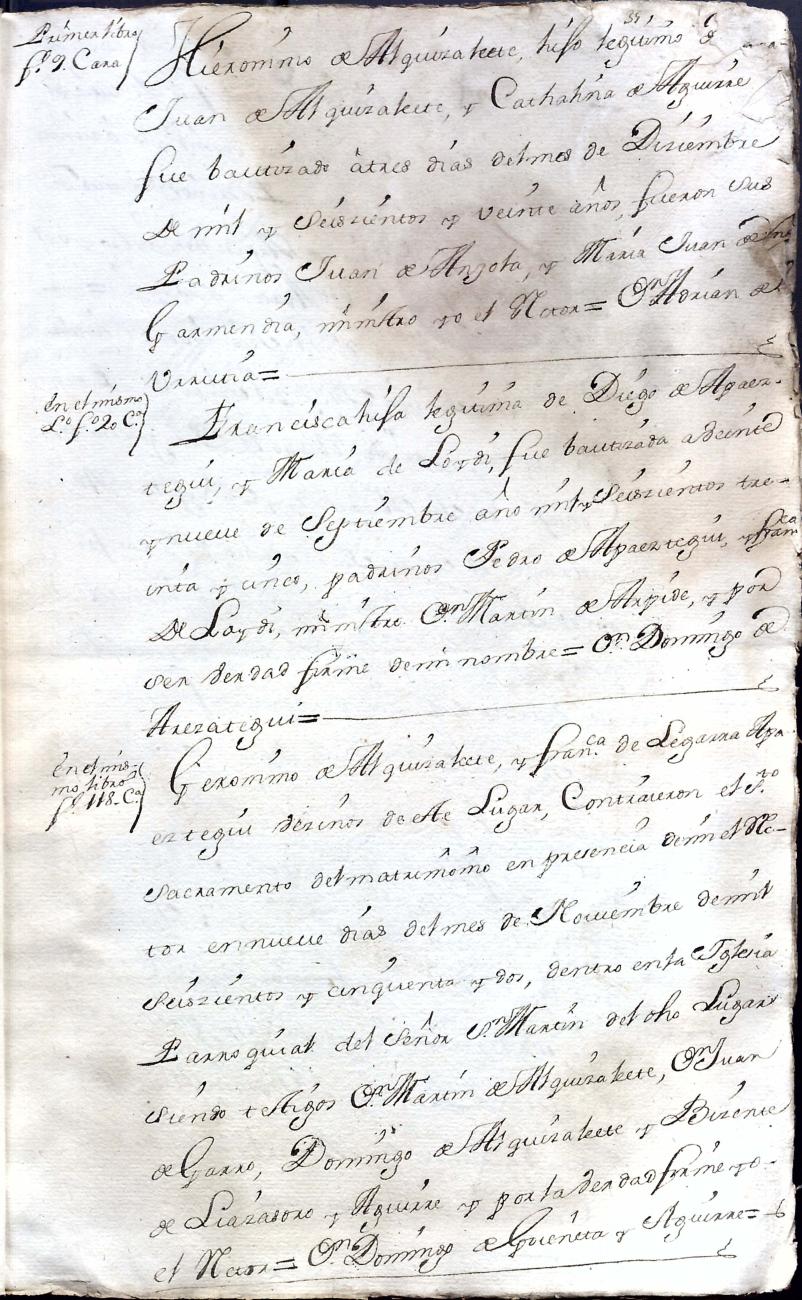 Primer libro
f.º 9. Cara
Hieronimo de Alquizalete, hijo legitimo de
Juan de Alquizalete, y Cathalina de Aguirre
fue bautizado à tres dias del mes de Diziembre
de mil y seiszientos y veinte años, fueron sus
Padrinos Juan de Angota, y Maria Juan de
Garmendia, ministro yo el Retor= Dn Adrian de
Urrutia=
En el mismo
L.º f.º 20 C.ª
Francisca hija legitima de Diego de Apaez-
tegui, y Maria de Loydi, fue bautizada a veinte
y nueve de Septiembre año mil y seiszientos tre-
inta y cinco, padrinos Pedro de Apaeztegui, y fran.ca
de Loydi, ministro Dn Martin de Arpide, y por
ser verdad firme de mi nombre= Dn Domingo de
Arezategui=
En el mis-
mo libro
f.º 118- C.ª
Geronimo de Alquizalete, y fran.ca de Legarra Apa
eztegui vezinos de este Lugar, Contrajeron el S.to
Sacramento del matrimonio en presencia de mi el Re-
tor en nueve dias del mes de Noviembre de mil
seiszientos y cinquenta y dos, dentro en la Iglesia
Parroquial del Señor S.n Martin del dho Lugar
siendo testigos Dn Martin de Alquizalete, Dn Juan
de Garro, Domingo de Alquizalete y Bizente
de Liazasoro y Aguirre y por la verdad firme yo
el Retor= Dn Domingo de Goieneta y Aguirre=